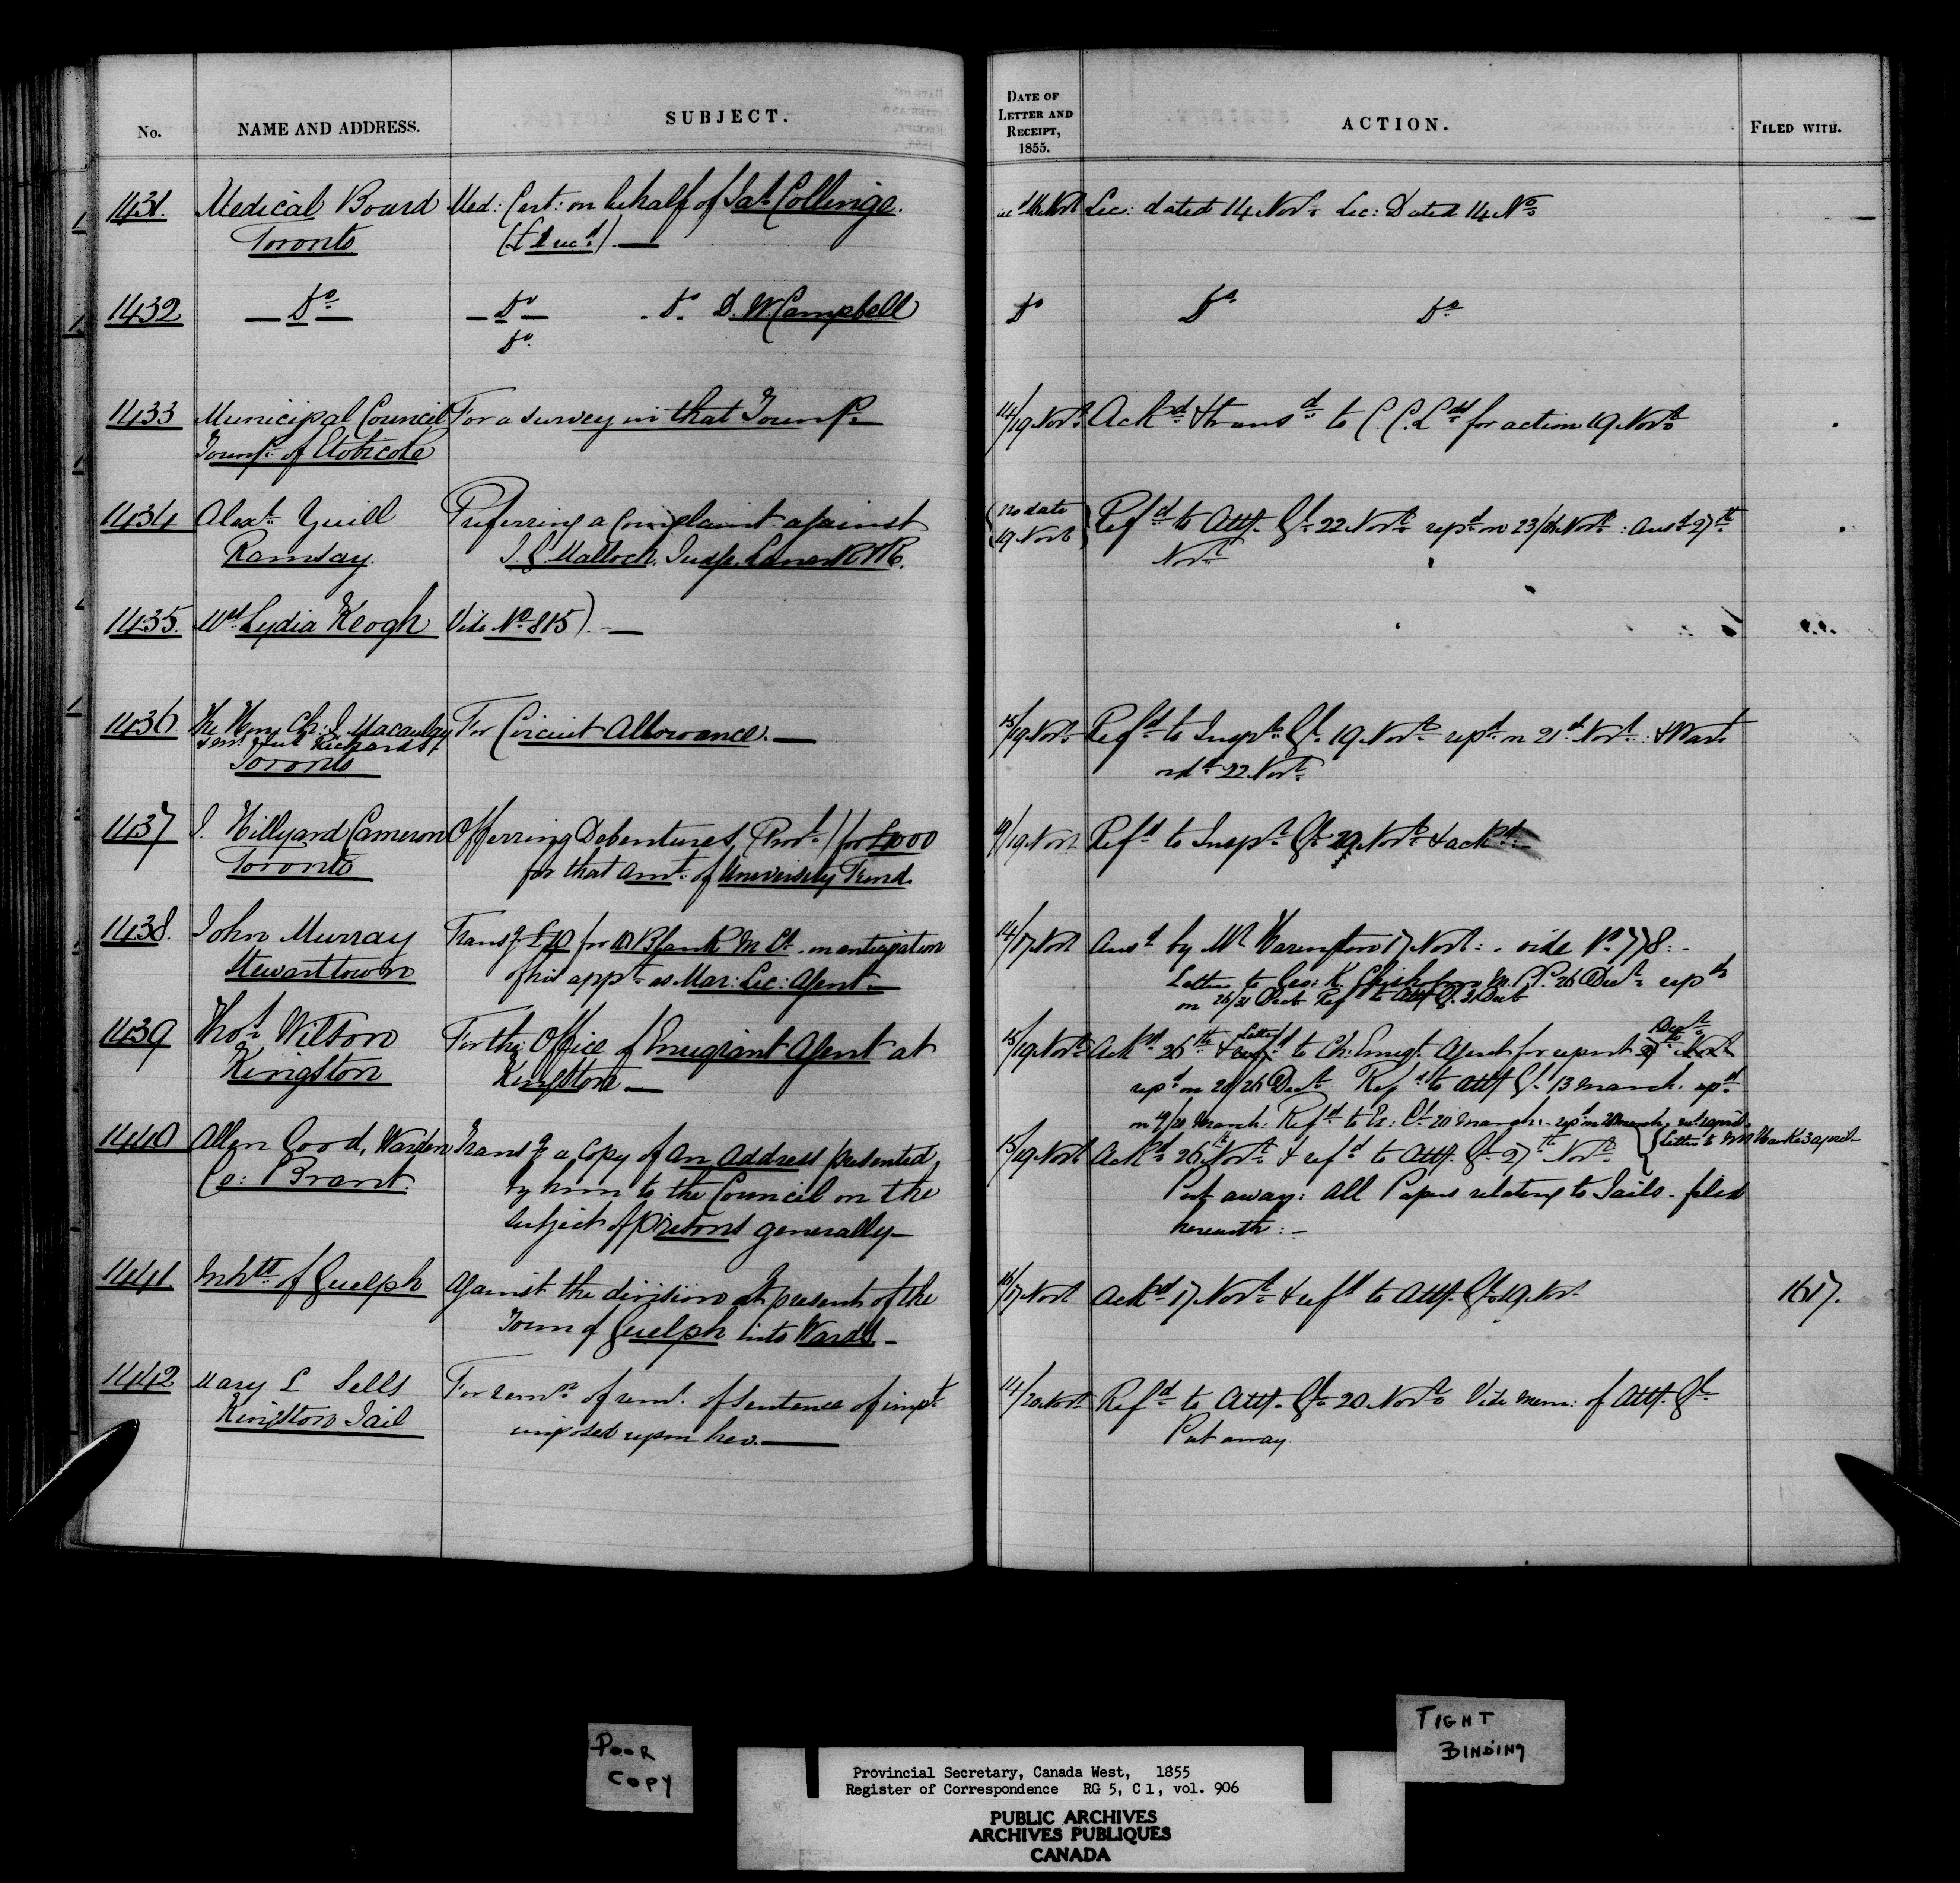 No. NAME AND ADDRESS. SUBJECT. DATE OF LETTER AND RECEIPT, 1855. ACTION. FILED WITH.
1431. Medical Board Med: Cert: on behalf of Jas Collinge. 16 Novr Lic: dated 14 Novr Lic: Dated 14 No
Toronto (£1 recd). —
1432 — Do — — Do — . Do. D. W Campbell Do Do Do
Do.
1433 Municipal Council For a survey in that Townsp. 14/19 Novr Ackd & transd to C. C. Lds for action 19 Novr
Townsp. of Etobicoke
1434 Alexr Yuill Preferring a complaint against (no date Refd to Atty. Gl. 22 Novr repd on 23/ Novr : Ansd 27th
Ramsay. J. G. Malloch, Judge, Lanark & R. 19 Novr) Novr
1435. Mrs Lydia Keogh Vide No 815). —
1436. The Hon. Ch: J. Macaulay For Circuit Allowance. — 15/19 Novr Refd to Inspr Gl. 19 Novr repd on 21st Novr : & Wart
& Mr Just Richards, ordd 22 Novr
Toronto
1437 J. Hillyard Cameron Offerring Debentures, (Provl) for £1000 19/19 Novr Refd to Inspr Gl. 29 Novr & ackd
Toronto for that amt. of University Fund.
1438. John Murray Transg £10 for 10 Blank M. Ls. in anticipation 14/17 Novr Ansd by Mr Harington 17 Novr: - vide No. 778: -
Stewarttown of his appt. as Mar: Lic: Agent — Letter to Geo: K. Chisholm M.P.P. 26 Decr repd
on 26/31 Decr Refd to Atty G. 31 Decr
1439 Thos Wilson For the Office of Emigrant Agent at 15/19 Novr Ackd 26th & Letter to Ch: Emigt. Agent for report Decr
Kingston Kingston — repd on 20/26 Decr Refd to Atty Gl. 13 March. repd
on 19/20 March: Refd to Ex: Cl. 20 March: - repd on 20 March,
1440 Allen Good, Warden Transg a copy of an Address presented 15/19 Novr Ackd 26th Novr & refd to Atty. Gl. 27th Novr { Letter to Mr 3 April —
Co: Brant. by him to the Council on the Put away: All Papers relating to Jails - filed
subject of Prisons generally — herewith: -
1441 Inhts of Guelph Against the division at present of the 16/17 Novr Ackd 17 Novr & refd to Atty. Gl. 19 Novr 1617.
Town of Guelph into Wards —
1442 Mary L Sells For remn of remr. of sentence of impt. 14/20 Novr Refd to Atty. Gl. 20 Novr Vide mem: of Atty. Gl.
Kingston Jail imposed upon her. — Put away.
POOR
COPY
TIGHT
BINDING
Provincial Secretary, Canada West, 1855
Register of Correspondence RG 5, C 1, vol. 906
PUBLIC ARCHIVES
ARCHIVES PUBLIQUES
CANADA